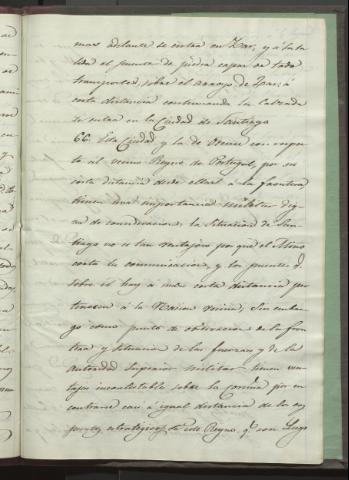 mas adelante se entra en Zas, y á la sa
lida el puente de piedra capaz de todo
transporte, sobre el arroyo de Zas, á
corta distancia continuando la Calzada
se entra en la Ciudad de Santiago
66. Esta Ciudad y la de Orense con respe
to al vecino Reyno de Portugal, por su
corta distancia desde ellas á la frontera
tienen una importancia militar dig
na de consideracion. la situacion de San
tiago no es tan ventajosa por que el Miño
corta la comunicacion, y los puentes q.
sobre él hay á una corta distancia per
tenecen á la Nacion vecina; Sin embar
go como punto de observacion de la fron
tera y situacion de las fuerzas y de la
Autoridad Superior militar tienen ven
tajas incontestable sobre la Coruña por en
contrarse casi á igual distancia de los
puntos estratégicos de este Reyno, q.e son Lugo